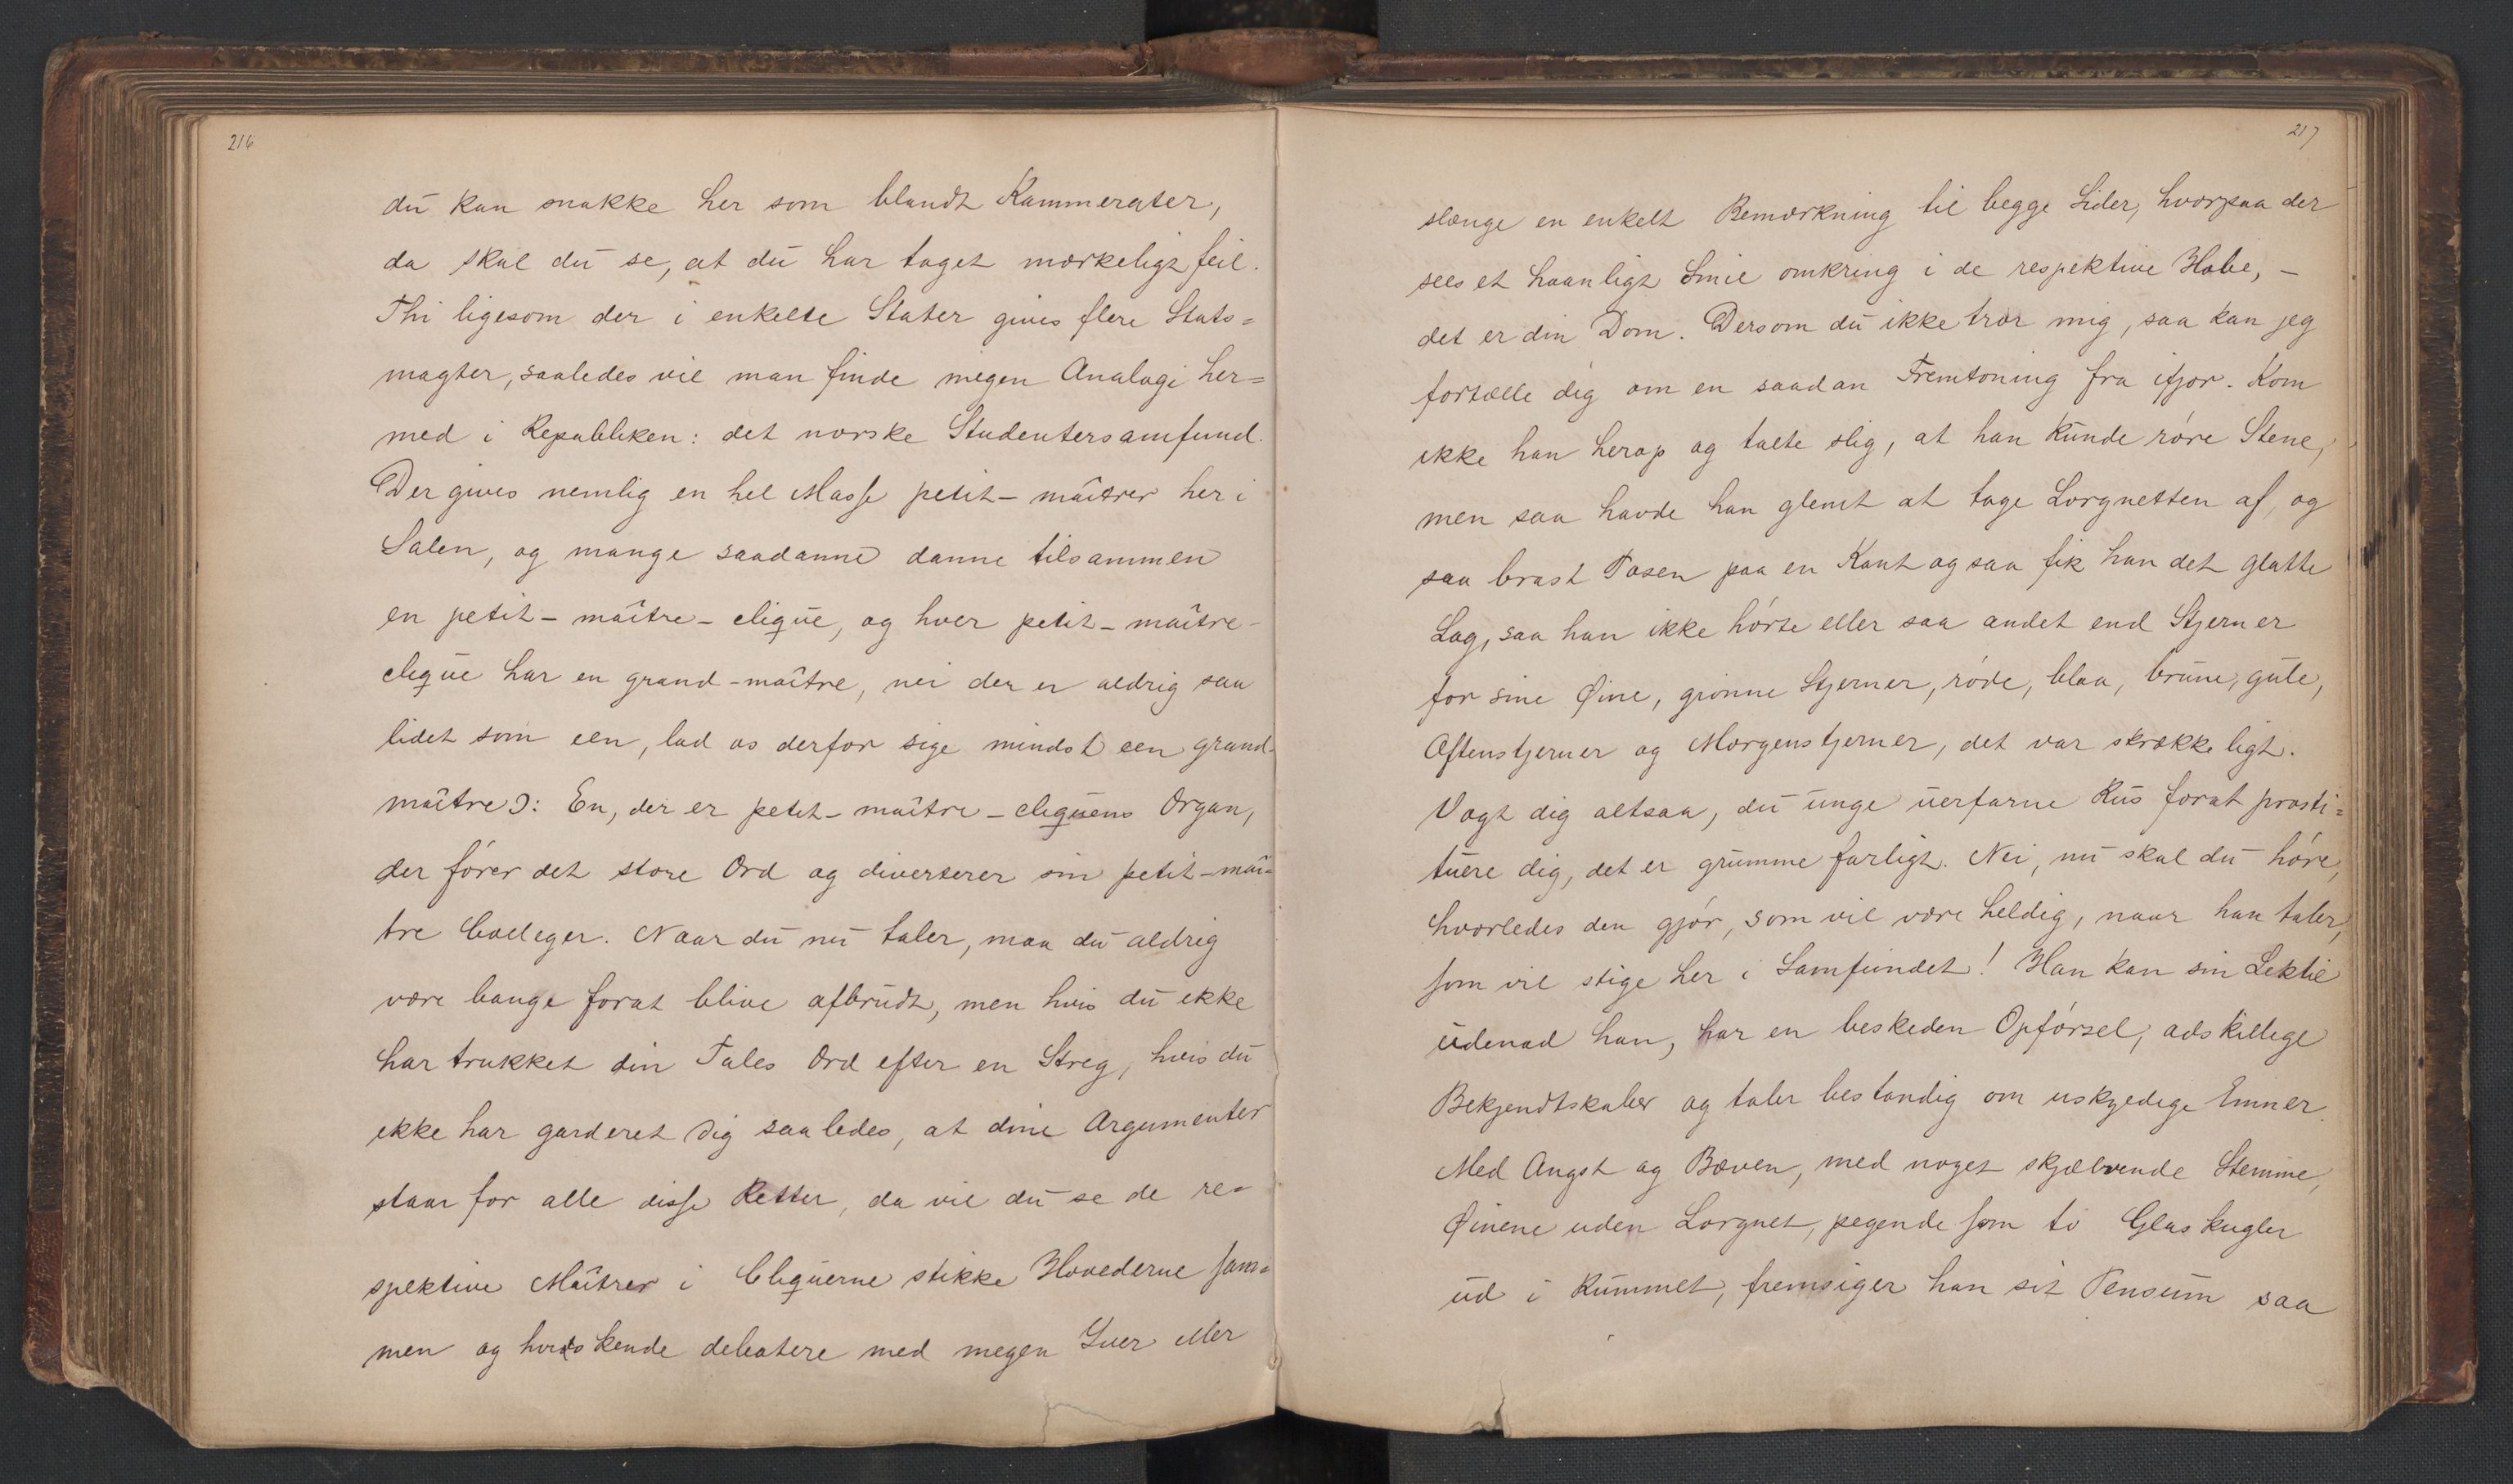 216
du kan snakke her som blandt Kammerater,
da skal du se, at du har taget mærkeligt feil.
Thi ligesom der i enkelte Stater gives flere Stats=
magter, saaledes vil man finde megen Analogi her=
med i Republiken: det norske Studentersamfund.
Der gives nemlig en hel Masse petit-maîtrer her i
Salen, og mange saadanne danne tilsammen
en petit-maître-clique, og hver petit-maître-
clique har en grand-maître, nei der er aldrig saa
lidet som een, lad os derfor sige mindst een grand-
maître ɔ: En, der er petit-maître-cliquens Organ,
der fører det store Ord og diverterer sin petit-maî-
tre Colleger. Naar du nu taler, maa du aldrig
være bange forat blive afbrudt, men hvis du ikke
har trukket din Tales Ord efter en Streg, hvis du
ikke har garderet dig saaledes, at dine Argumenter
staar for alle disse Retter, da vil du se de re-
spektive Maîtrer i Cliquerne stikke Hovederne sam=
men og hviskende debatere med megen Iver eller
217
slænge en enkelt Bemærkning til begge Sider, hvorpaa der
sees et haanligt Smil omkring i de respektive Hobe, -
det er din Dom. Dersom du ikke tror mig, saa kan jeg
fortælle dig om en saadan Fremtoning fra ifjor. Kom
ikke han herop og talte slig, at han kunde røre Stene,
men saa havde han glemt at tage Lorgnetten af, og
saa brast Posen paa en Kant og saa fik han det glatte
Lag, saa han ikke hørte eller saa andet end Stjerner
for sine Øine, grønne Stjerner, røde, blaa, brune, gule,
Aftenstjerner og Morgenstjerner, det var skrækkeligt.
Vogt dig altsaa, du unge uerfarne Rus forat prosti=
tuere dig, det er grumme farligt. Nei, nu skal du høre,
hvorledes den gjør, som vil være heldig, naar han taler,
som vil stige her i Samfundet! Han kan sin Lektie
udenad han, har en beskeden Opførsel, adskillige
Bekjendtskaber og taler bestandig om uskyldige Emner.
Med Angst og Bæven, med noget skjælvende Stemme,
Øinene uden Lorgnet, pegende som to Glaskugler
ud i Rummet, fremsiger han sit Pensum saa